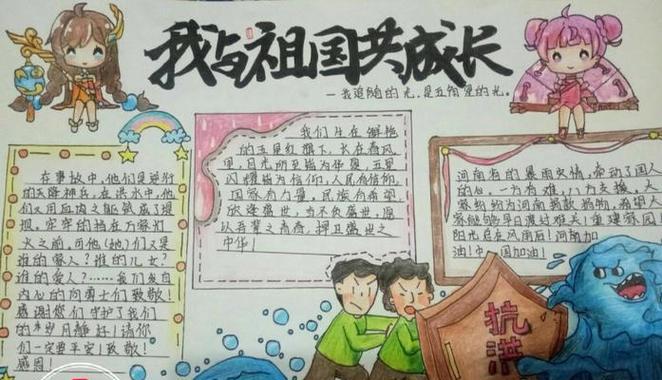 我与祖国共成长
—我追随的光,是五角星的光。
在事故中,他们是逆行
的天降神兵,在洪水中,他
们又用血肉之躯筑成了堤
坝,牢牢的挡在万家灯
火之前,而他(她)们又是
谁的家人?谁的儿女?
谁的爱人?……我们发自
内心的向勇士们致敬!
感谢您们守护了我们
的岁月静好!请你
们一定要平安!致敬!
感恩!
我们生在
的五星红旗下,长在春风
里,目光所至皆为华夏,五星
闪耀皆为信仰,人民有信仰,
国家有力量,民族有希望,
欣逢盛世,当不负盛世,愿
以吾辈之青春,捍卫盛世之
中华!
河南省的暴雨灾情,牵动了国人
的心,一方有难,八方支援,大
家纷纷为河南捐款捐物,希望大
家能够早日渡过难关!重建家园
阳光总在风雨后!河南加
油!中国加油!
抗
洪